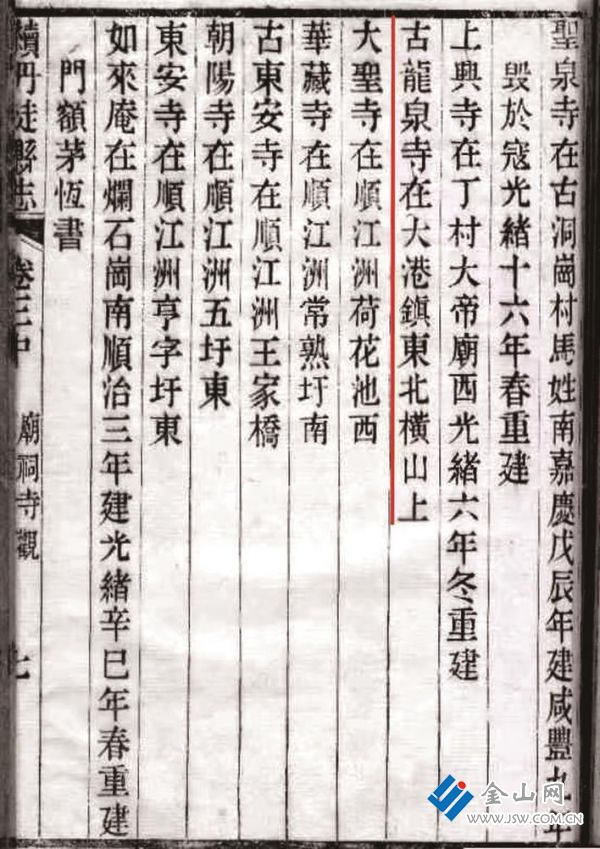 聖泉寺在古洞崗村馬姓南嘉慶戊辰年建咸豐九年
毀於寇光緒十六年春重建
上興寺在丁村大帝廟西光緒六年冬重建
古龍泉寺在大港鎮東北橫山上
大聖寺在順江洲荷花池西
華藏寺在順江洲常熟圩南
古東安寺在順江洲王家橋
朝陽寺在順江洲五圩東
東安寺在順江洲亨字圩東
如來庵在爛石崗南順治三年建光緒辛巳年春重建
門額茅恆書
續丹徒縣志 卷三中 廟祠寺觀 七
金山网
www.JSW.COM.CN